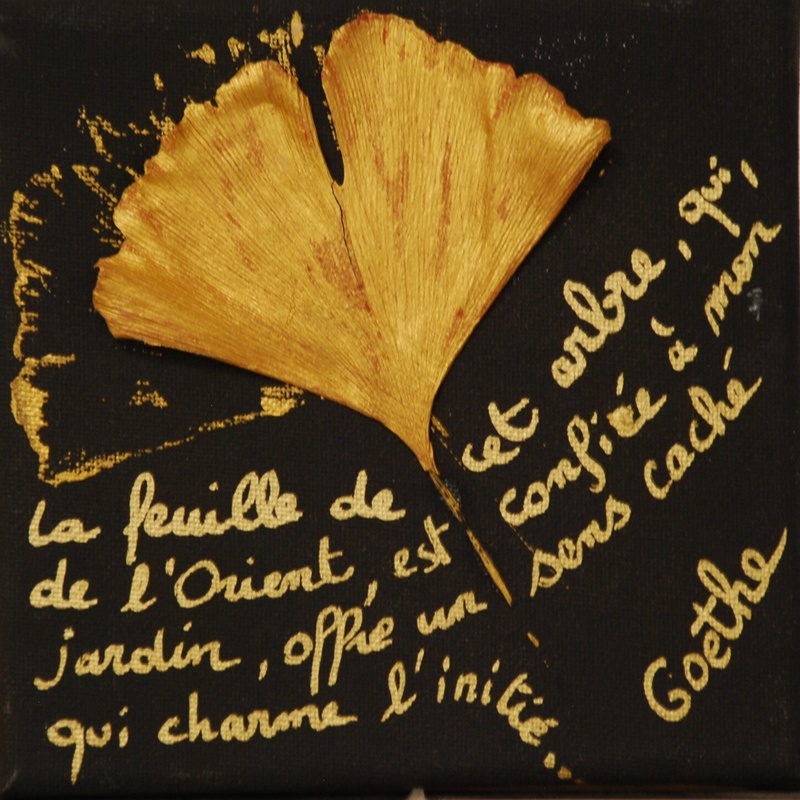 La feuille de cet arbre, qui,
de l'Orient, est confiée à mon
jardin, offre un sens caché
qui charme l'initié.
Goethe